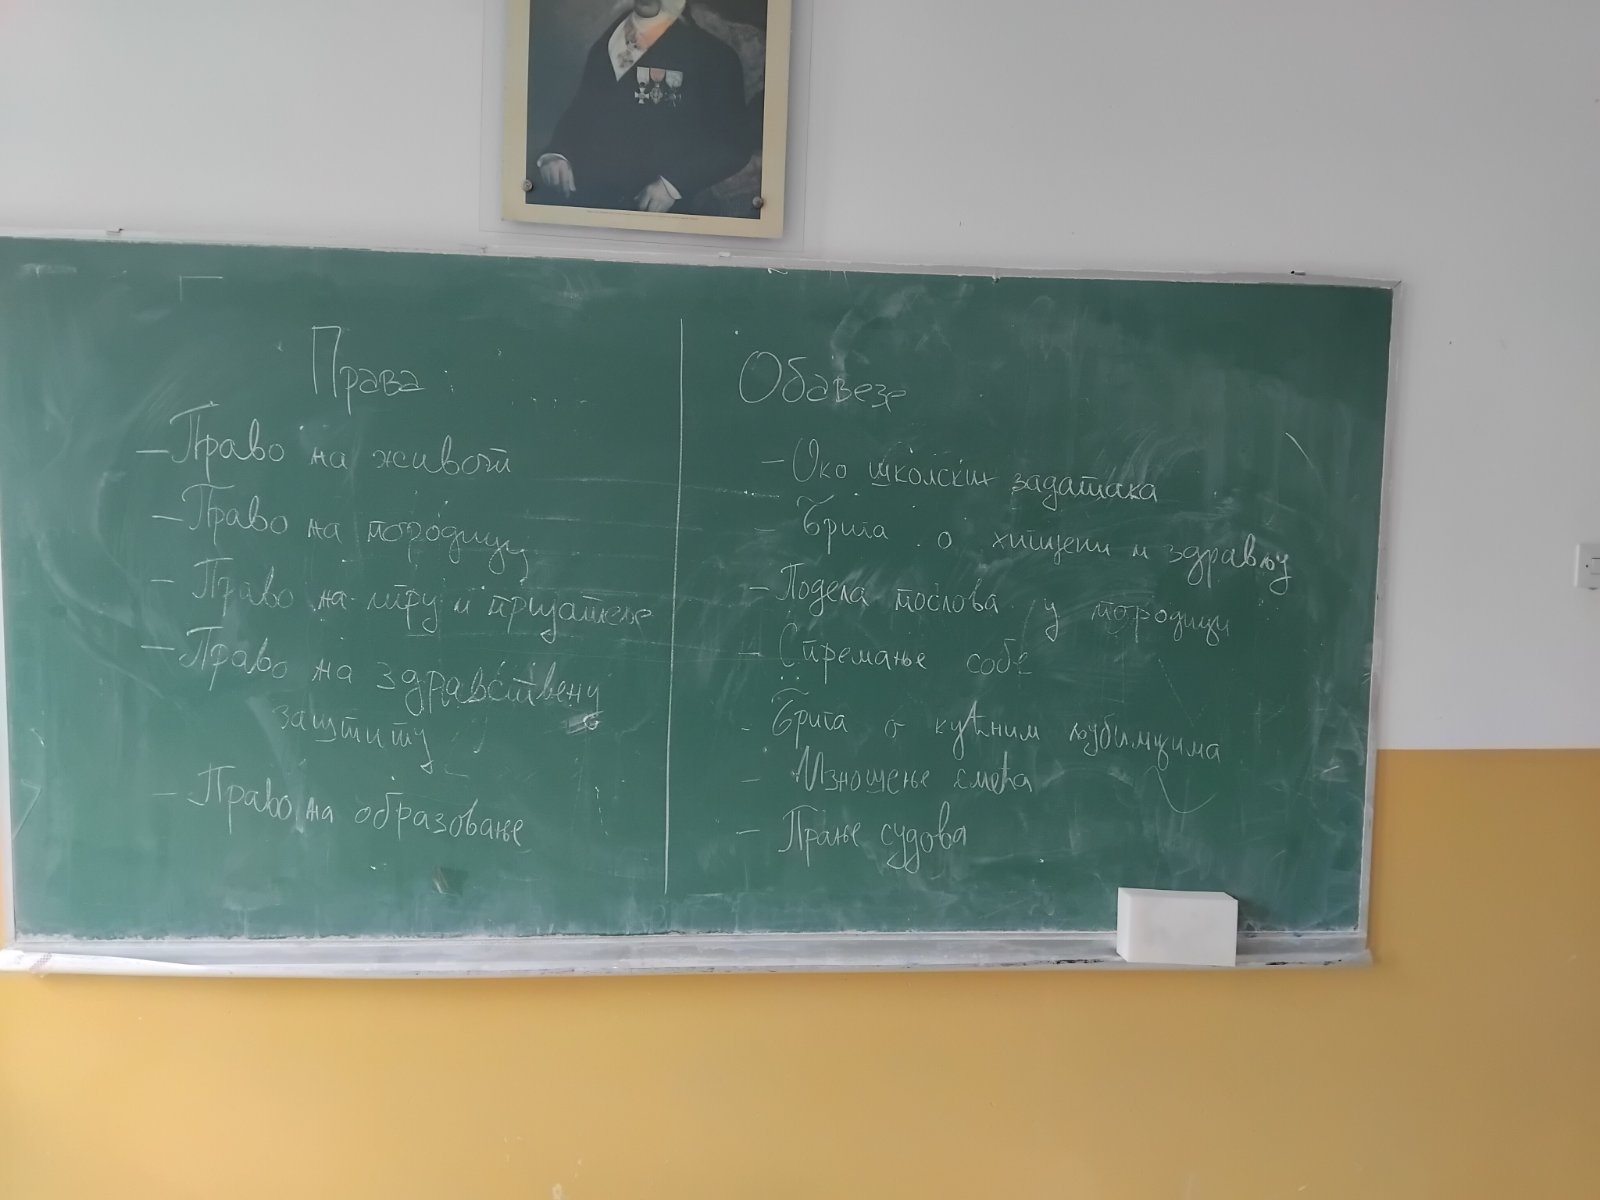 Права:
- Право на живот
- Право на породицу
- Право на игру и пријатеље
- Право на здравствену
заштиту
- Право на образовање
Обавезе
- Око школских задатака
- Брига о хигијени и здрављу
- Подела послова у породици
- Спремање собе
- Брига о кућним љубимцима
- Изношење смећа
- Прање судова